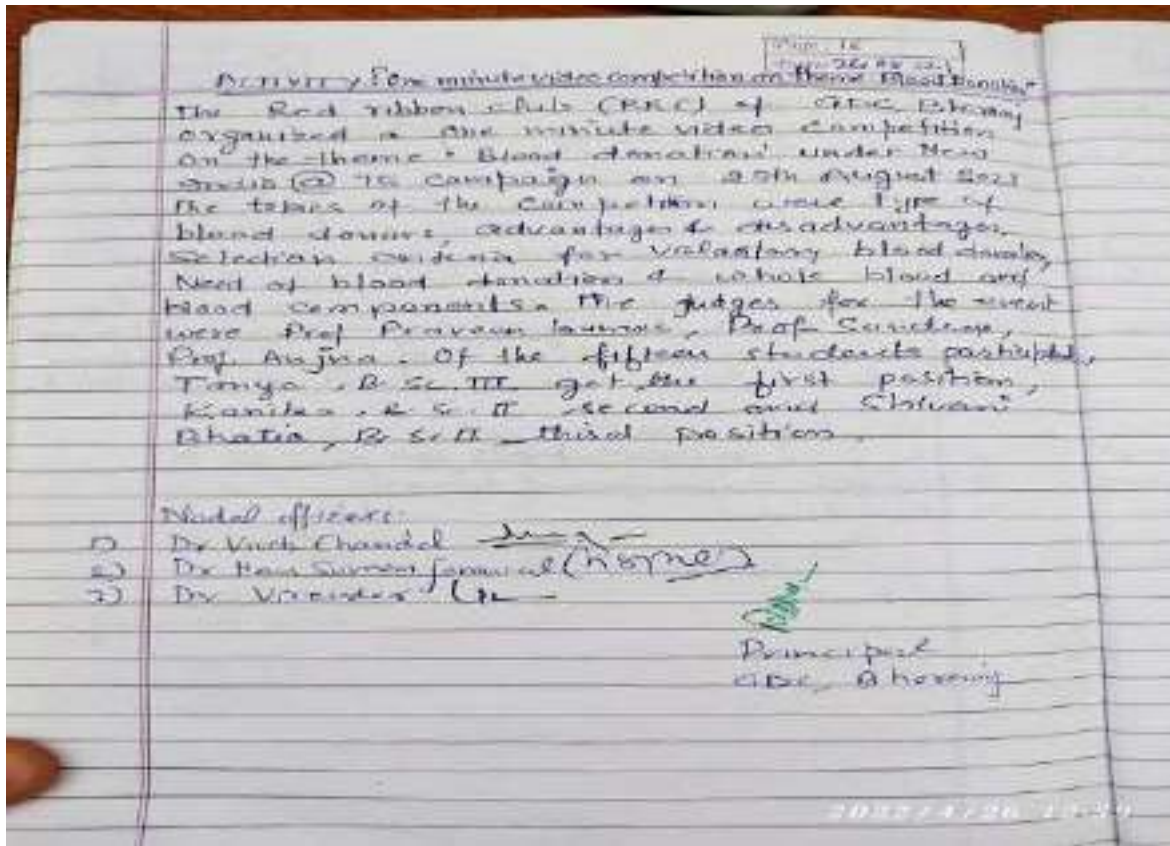 Activity: One minute video competition on theme Blood Donation
The Red ribbon club (RRC) of GDC
organized a one minute video Competition
on the theme "Blood donation" under New
India @ 75 campaign on 25th August 2021
The topics of the Competition were Type of
blood donors, advantages & disadvantages,
Selection criteria for Voluntary blood donation,
Need of blood donation & whole blood and
blood components. The judges for the event
were Prof Praveen, Prof
Prof. Anjna. Of the fifteen students
Tanya, B Sc. III got the first position,
Kanika, B Sc. II second and Shivani
Bhatia, B Sc II third position.
Nodal officers:
1) Dr Chandel
2) Dr Suman
3) Dr Virender
Principal
GDC,
2022/4/26